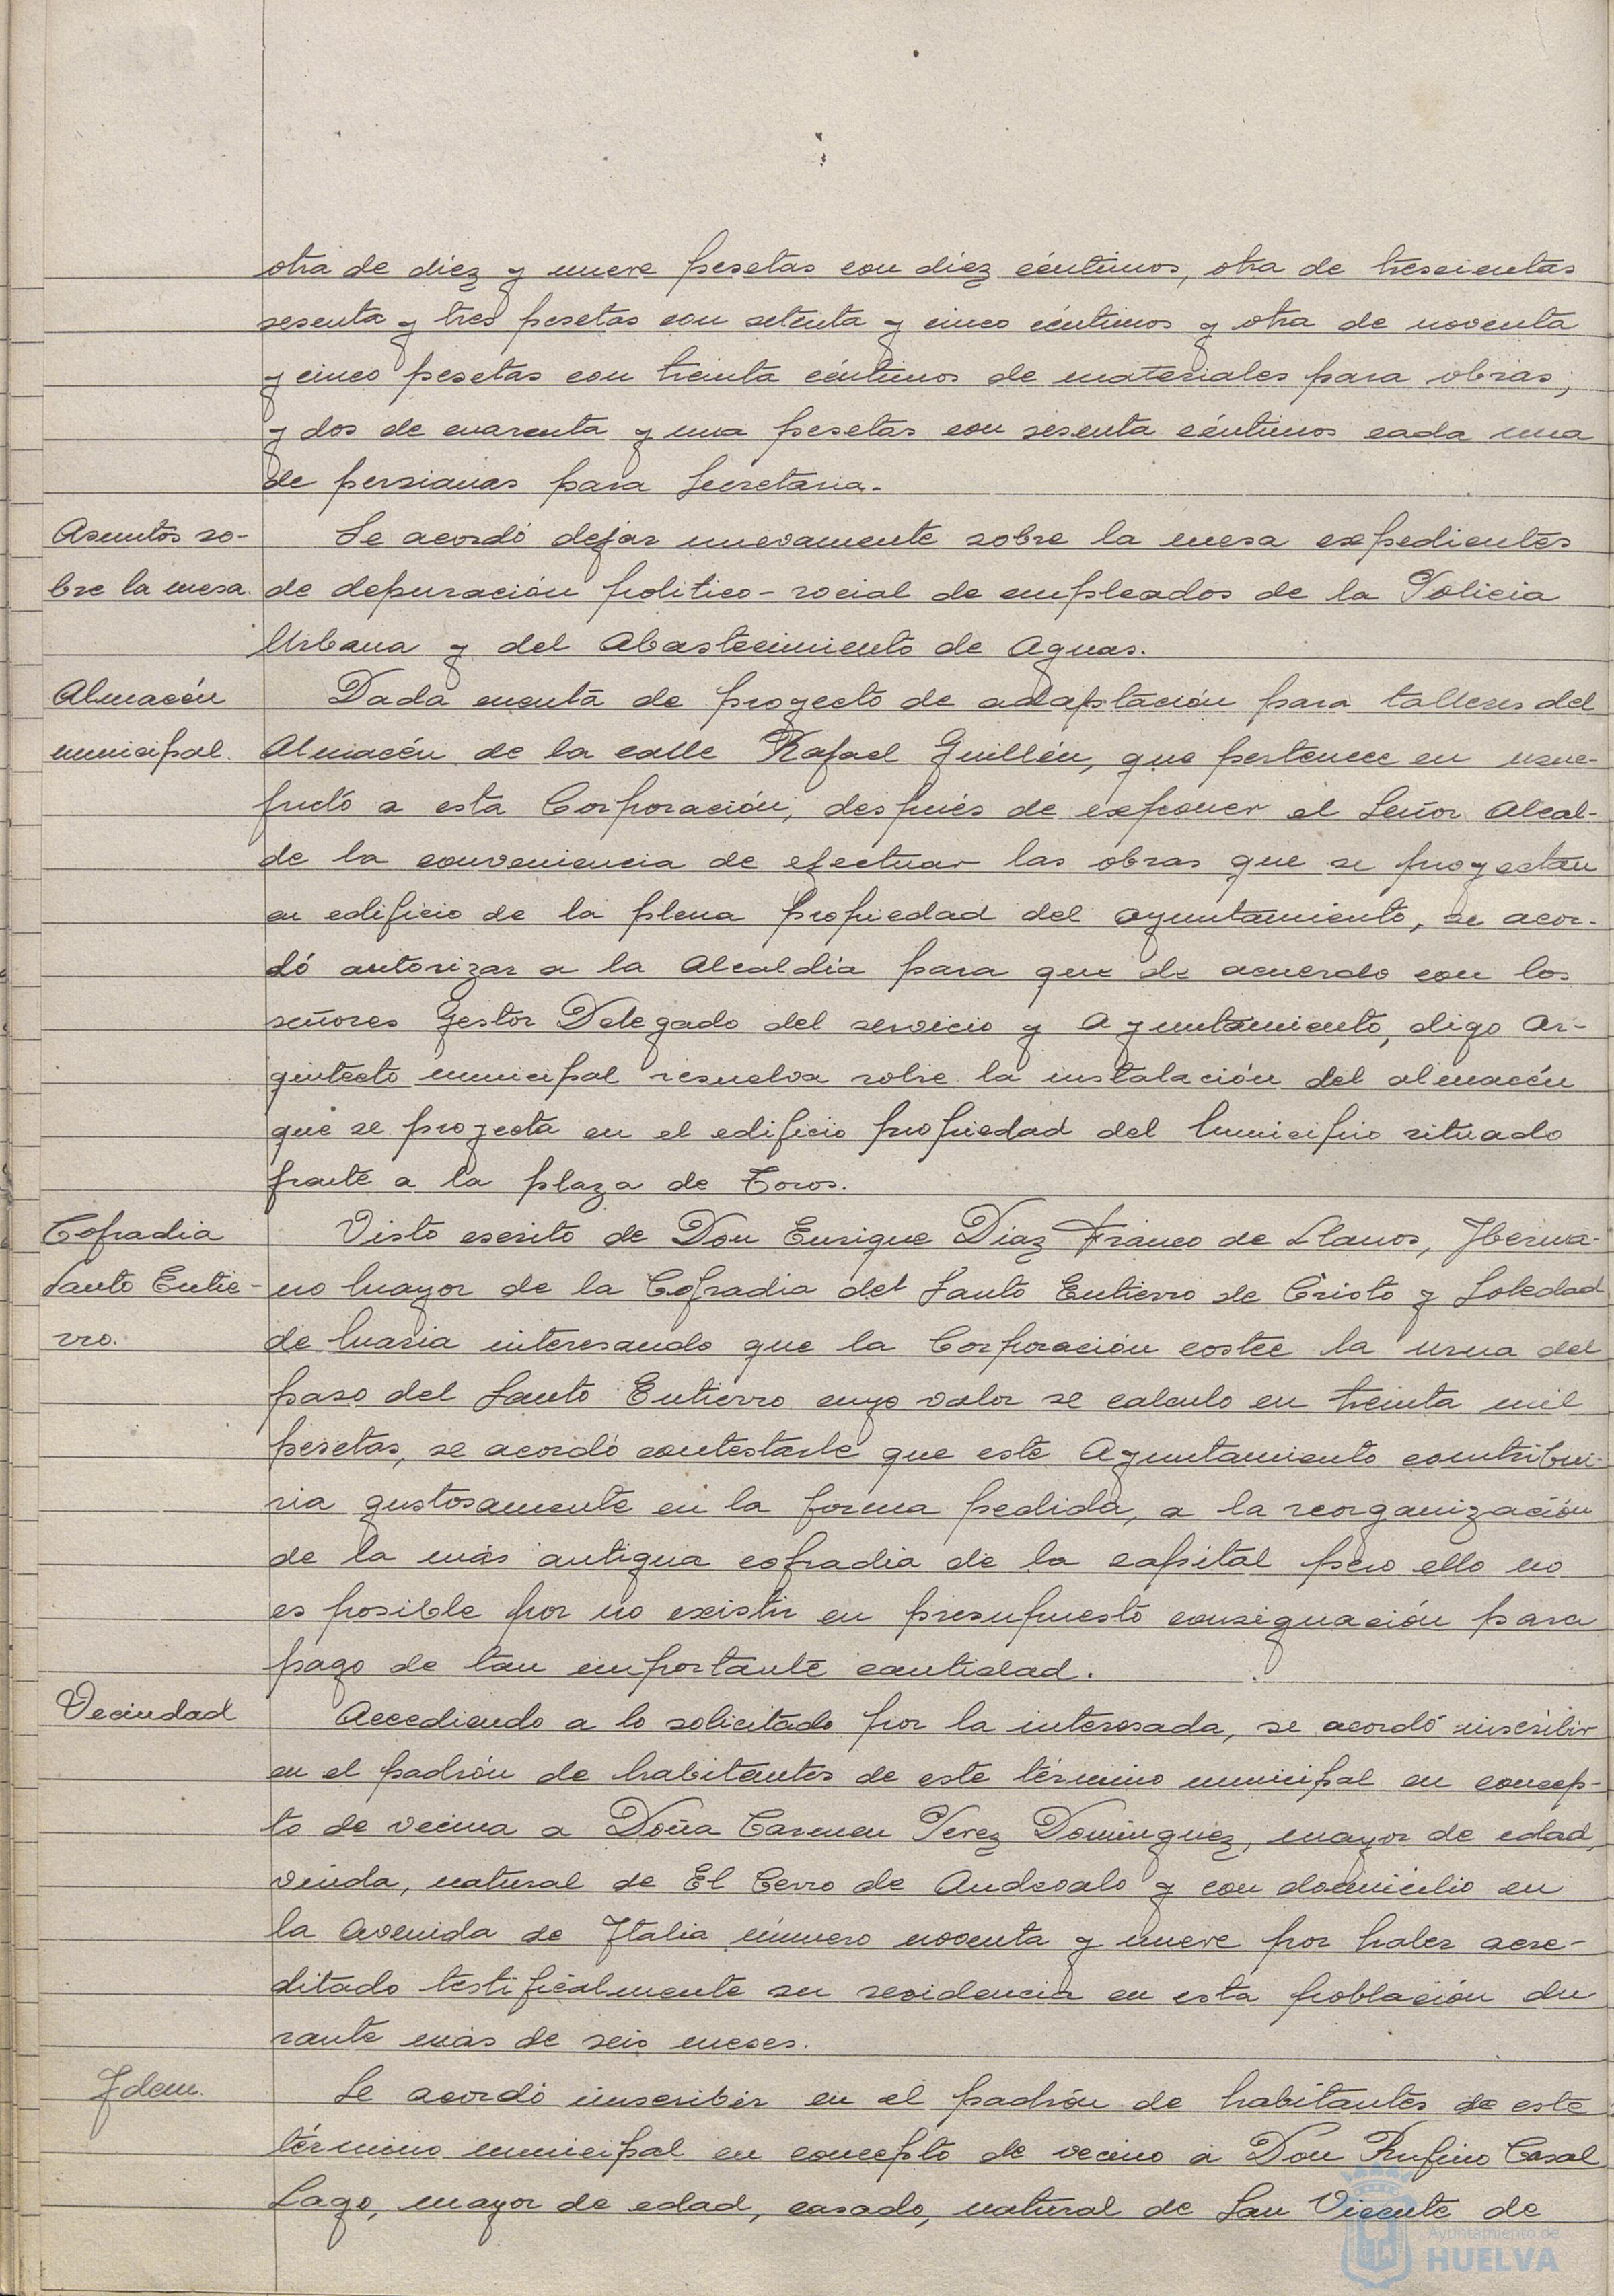 otra de diez y nueve pesetas con diez céntimos, otra de trescientas
sesenta y tres pesetas con setenta y cinco céntimos y otra de noventa
y cinco pesetas con treinta céntimos de materiales para obras;
y dos de cuarenta y una pesetas con sesenta céntimos cada una
de persianas para Secretaria.
Asuntos so-
bre la mesa.
Se acordó dejar nuevamente sobre la mesa expedientes
de depuración politico-social de empleados de la Policia
Urbana y del Abastecimiento de Aguas.
Almacén
municipal.
Dada cuenta de proyecto de adaptación para talleres del
Almacén de la calle Rafael Guillén, que pertenece en usu-
fructo a esta Corporación, después de exponer el Señor Alcal-
de la conveniencia de efectuar las obras que se proyectan
en edificio de la plena propiedad del ayuntamiento, se acor-
dó autorizar a la Alcaldía para que de acuerdo con los
señores Gestor Delegado del servicio y Ayuntamiento, digo Ar-
quitecto municipal resuelva sobre la instalación del almacén
que se proyecta en el edificio propiedad del Municipio situado
frente a la plaza de Toros.
Cofradia
Santo Entie-
rro.
Visto escrito de Don Enrique Díaz Franco de Llanos, Herma-
no Mayor de la Cofradia del Santo Entierro de Cristo y Soledad
de Maria interesando que la Corporación costee la urna del
paso del Santo Entierro cuyo valor se calculo en treinta mil
pesetas, se acordó contestarle que este Ayuntamiento contribui-
ria gustosamente en la forma pedida, a la reorganización
de la más antigua cofradia de la capital pero ello no
es posible por no existir en presupuesto consignación para
pago de tan importante cantidad.
Vecindad
Accediendo a lo solicitado por la interesada, se acordó inscribir
en el padrón de habitantes de este término municipal en concep-
to de vecina a Doña Carmen Perez Dominguez, mayor de edad,
viuda, natural de El Cerro de Andévalo y con domicilio en
la Avenida de Italia número noventa y nueve por haber acre-
ditado testificalmente su residencia en esta población du
rante más de seis meses.
Idem.
Se acordó inscribir en el padrón de habitantes de este
término municipal en concepto de vecino a Don Rufino Casal
Lago, mayor de edad, casado, natural de San Vicente de
Ayuntamiento de
HUELVA